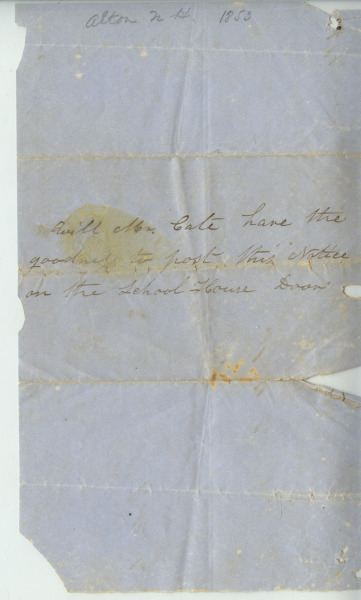 Alton N H 1853
Will Mr. Cate have the
goodness to post this Notice
on the School House Door